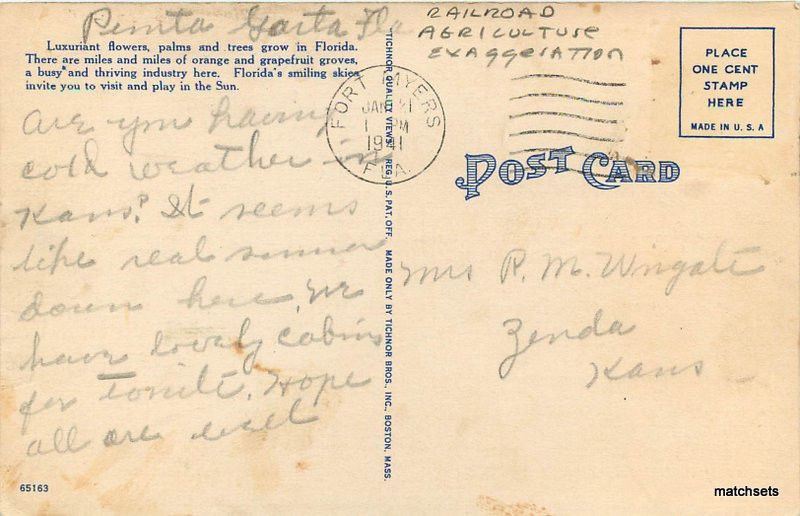 Punta Gorta Fla
Luxuriant flowers, palms and trees grow in Florida.
There are miles and miles of orange and grapefruit groves,
a busy and thriving industry here. Florida's smiling skies
invite you to visit and play in the Sun.
Are you having
cold weather in
Kans? It seems
like real summer
down here. We
have lovely cabins
for tonite. Hope
all are well
65163
TICHNOR QUALITY VIEWS. REG. U. S. PAT. OFF. MADE ONLY BY TICHNOR BROS., INC., BOSTON, MASS.
RAILROAD
AGRICULTURE
EXAGGERATION
FORT MYERS
JAN 21
1 PM
1941
FLA.
PLACE
ONE CENT
STAMP
HERE
MADE IN U. S. A
POST CARD
Mrs R. M. Wingate
Zenda
Kans
matchsets